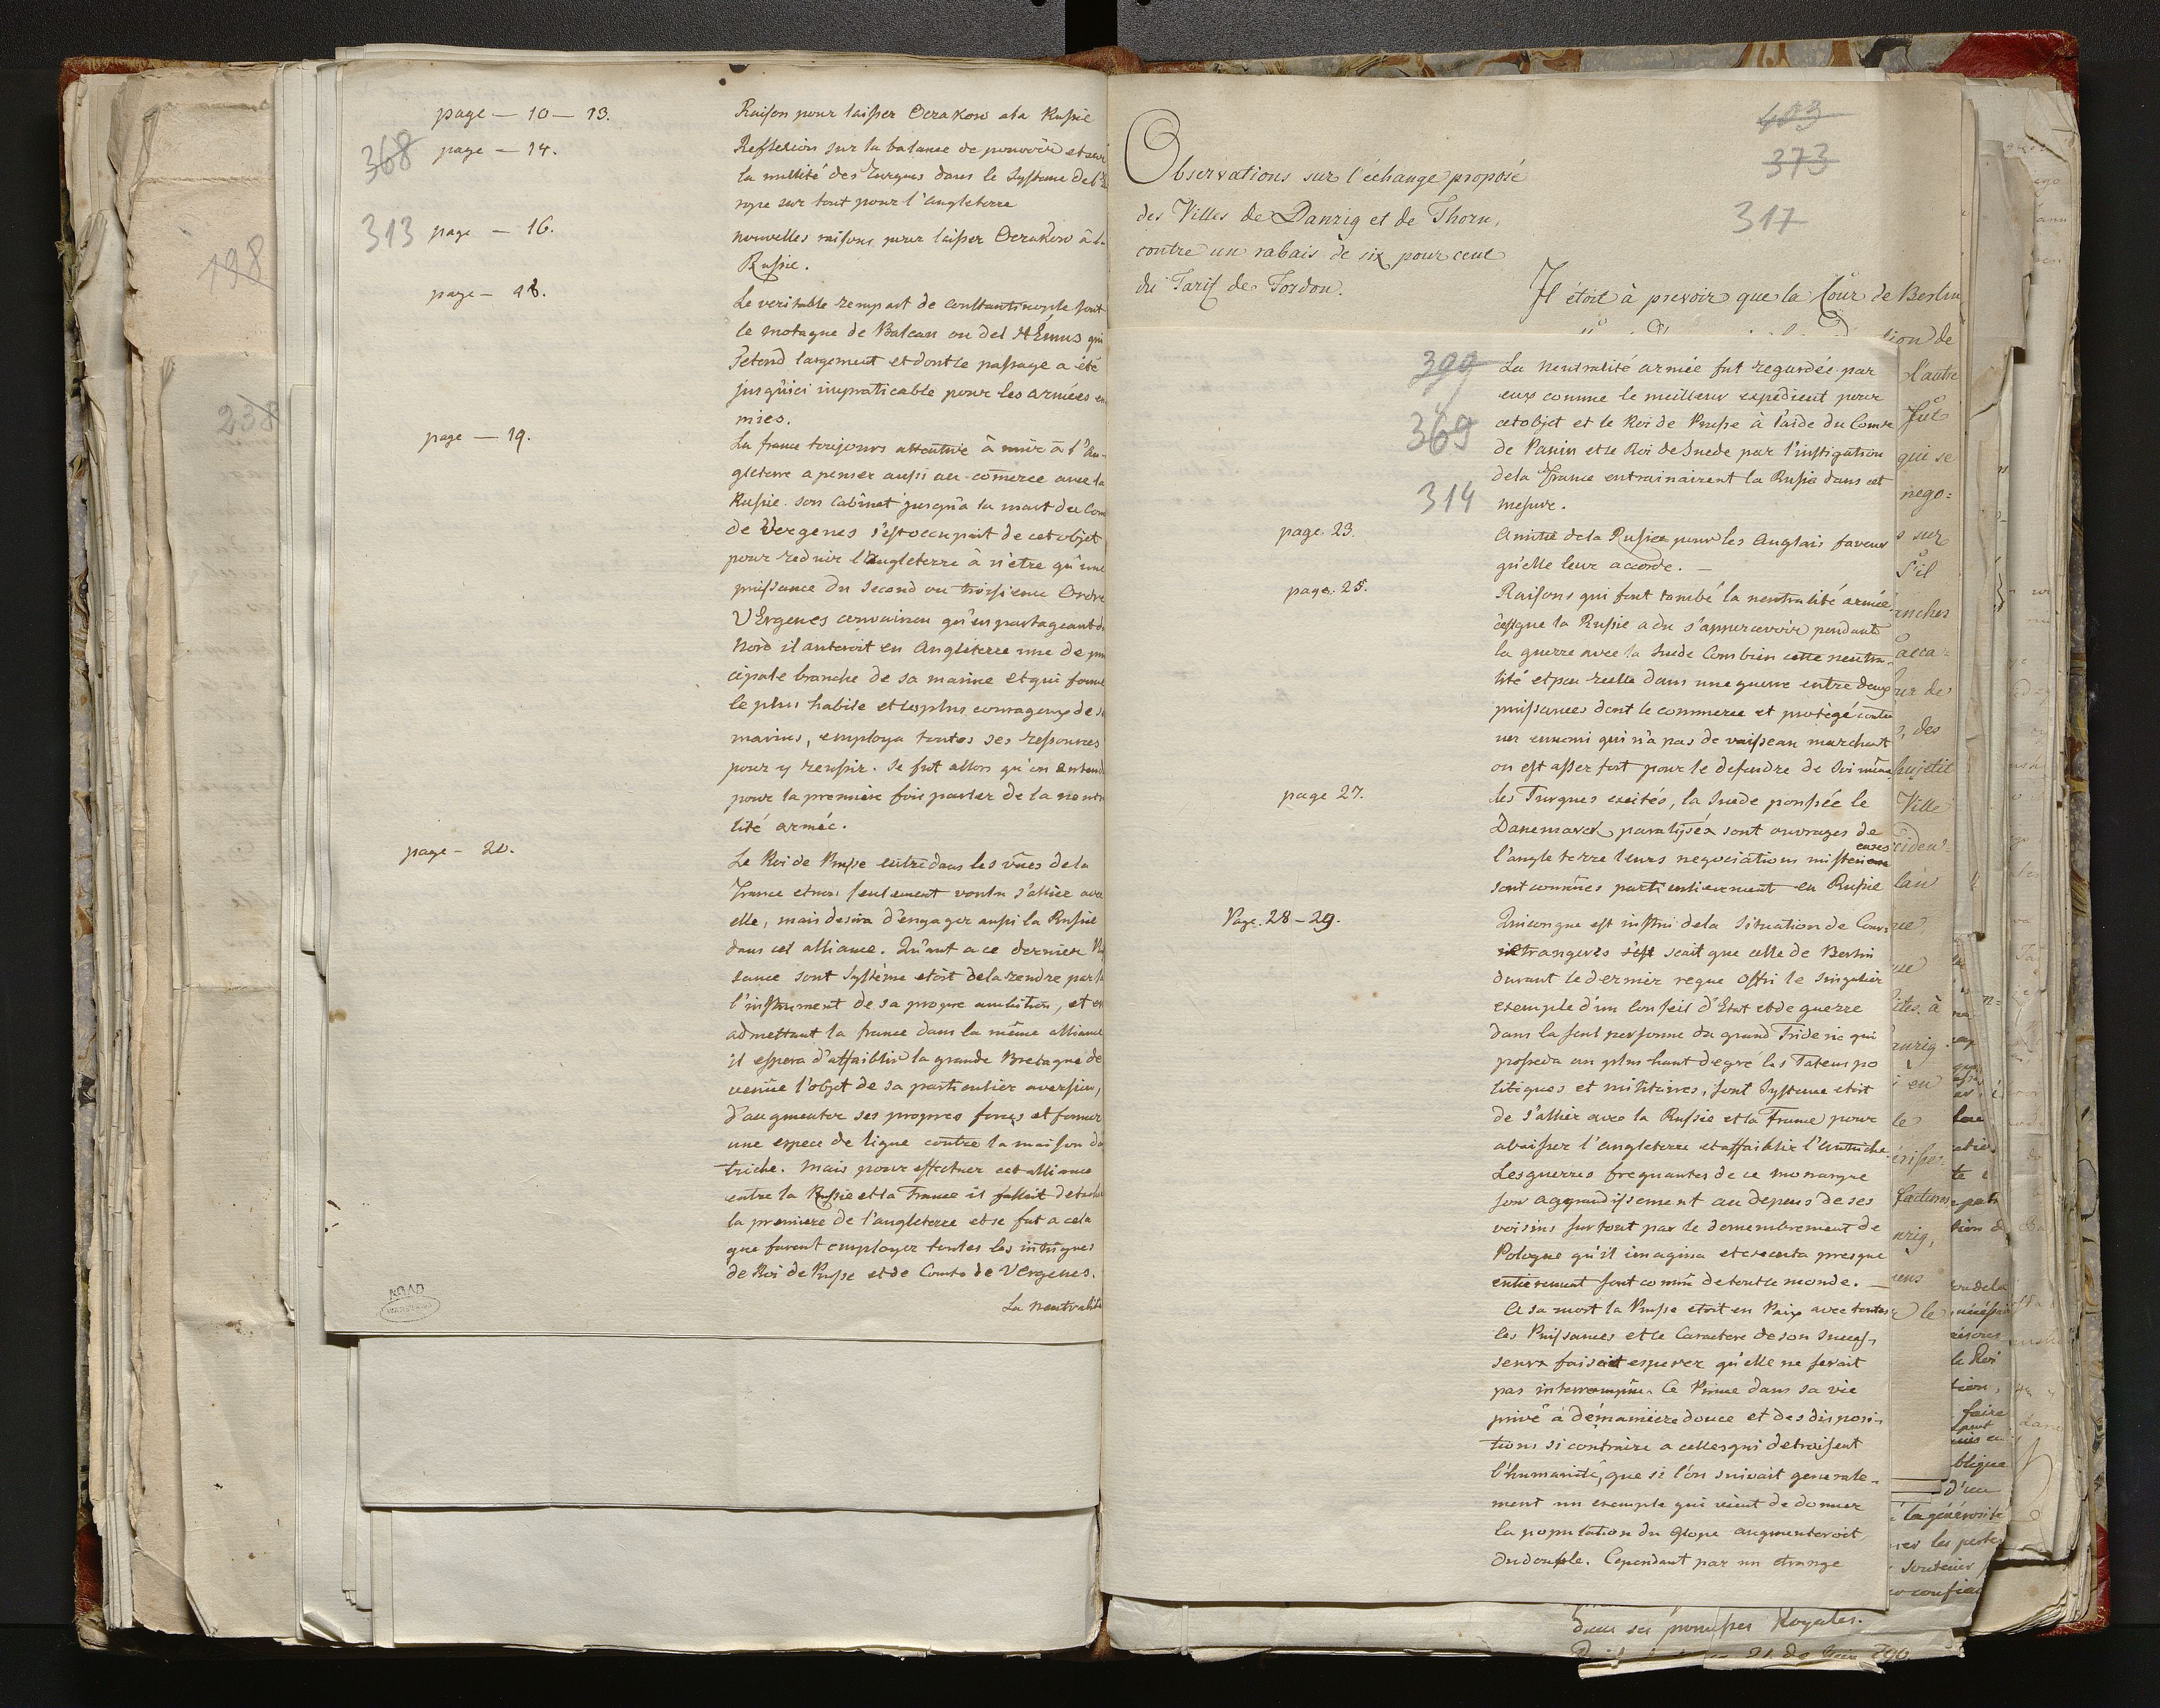 page — 10 — 13.
Raison pour laisser Oczakow a la Russie
368
page — 14.
Reflexion sur la balance de pouvoir et sur
la nullité des Turques dans le Systeme de l'Eu
rope sur tout pour l'angleterre
313
page — 16.
nouvelles raisons pour laisser Oczakow à la
Russie.
page — 18.
Le veritable rempart de constantinople sont
le motagne de Balcan ou del Hémus qui
s'etend largement et dont le passage a été
jusqu'ici impraticable pour les armées en
mies.
page — 19.
La france toujours attentive à nuir à l'An-
gleterre a penser aussi au comerce avec la
Russie. son Cabinet jusqu'a la mort du Com
de Vergenes s'est occupait de cet objet
pour reduir l'Angleterre à n'etre qu'une
puissance du Second ou troisieme Ordre
VErgenes convaincu qu'en partageant du
Nord il anteroit en Angleterre une de prin
cipale branche de sa marine et qui forme
le plus habile et les plus courageux de s
marins, employa toutes ses ressources
pour y reussir. Se fut allors qu'on entend
pour la première fois parler de la neutra
lité armée.
page — 20.
Le Roi de Prusse entré dans les vües de la
France et non seulement voulu s'allier avec
elle, mais desira d'engager aussi la Russie
dans cet alliance. Qu'ant a ce dernier Pu
sance sont Système etoit de la rendre par la
l'instrument de sa propre ambition, et en
admettant la france dans la même alliance
il espera d'affaiblir la grande Bretagne de
venüe l'objet de sa particulier aversion,
d'augmenter ses propres forces et former
une espece de ligue contre la maison d'a
triche. Mais pour effectuer cet alliance
entre la Russie et la France il falloit detache
la premiere de l'angleterre et se fut a cela
que furent employer toutes les intrigues
de Roi de Prusse et de Comte de Vergenes.
La neutralité
ADAD
WARSZAWA
198
238
403
373
317
Observations sur l'échange proposé
des Villes de Danzig et de Thorn,
contre un rabais de six pour cent
du Tarif de Fordon.
Il étoit à prevoir que la Cour de Berlin
399
369
314
La neutralité armée fut regardée par
eux comme le meilleur expedient pour
cet objet et le Roi de Prusse à l'aide du Comte
de Panin et le Roi de Suede par l'instigation
de la France entrainairent la Russie dans cet
mesure.
page. 23.
Amitié de la Russie pour les Anglais faveur
qu'elle leur accorde. —
page. 25.
Raisons qui font tombé la neutralité armée.
c'est que la Russie a du s'appercevoir pendant
la guerre avec la Suede Combien cette neutra-
lité et peu reelle dans une guerre entre deux
puissances dont le commerce et protégé contre
un ennemi qui n'a pas de vaisseau marchant
ou est asser fort pour le defendre de soi même
page 27.
les Turques excités, la Suede poussée le
Danemarck paralysés sont ouvrages de
l'angleterre leurs negociations misterieuses
sont connües particulierement en Russie
Page. 28 – 29.
Quiconque est instrui de la situation de Cours
etrangeres scait que celle de Berlin
durant le dernier regne offri le singulier
exemple d'un Conseil d'Etat et de guerre
dans la seul personne du grand Frideric qui
posseda au plus haut degré les Talens po
litiques et militaires, sont Systeme etoit
de s'allier avec la Russie et la France pour
abaisser l'angleterre et affaiblir l'autriche.
Les guerres frequantes de ce monarque
son aggrandissement au depens de ses
voisins sur tout par le demembrement de
Pologne qu'il imagina et executa presque
entierement sont connü de tout le monde. —
A sa mort la Prusse etoit en Paix avec toutes
les Puissances et le Caractere de son succes-
seurs faisait esperer qu'elle ne serait
pas interrompüe. Ce Prince dans sa vie
privé à de maniere douce et des disposi-
tions si contraire a celles qui detruisent
l'humanité, que si l'on suivait generale-
ment un exemple qui vient de donner
la population du Glope augmenteroit
du double. Cependant par un etrange
tion de
l'autre
fut
qui se
nego=
s sur
s'il
Ville
d'un
la générosité
les pertes
soutenir
dans ses promesses Royales.